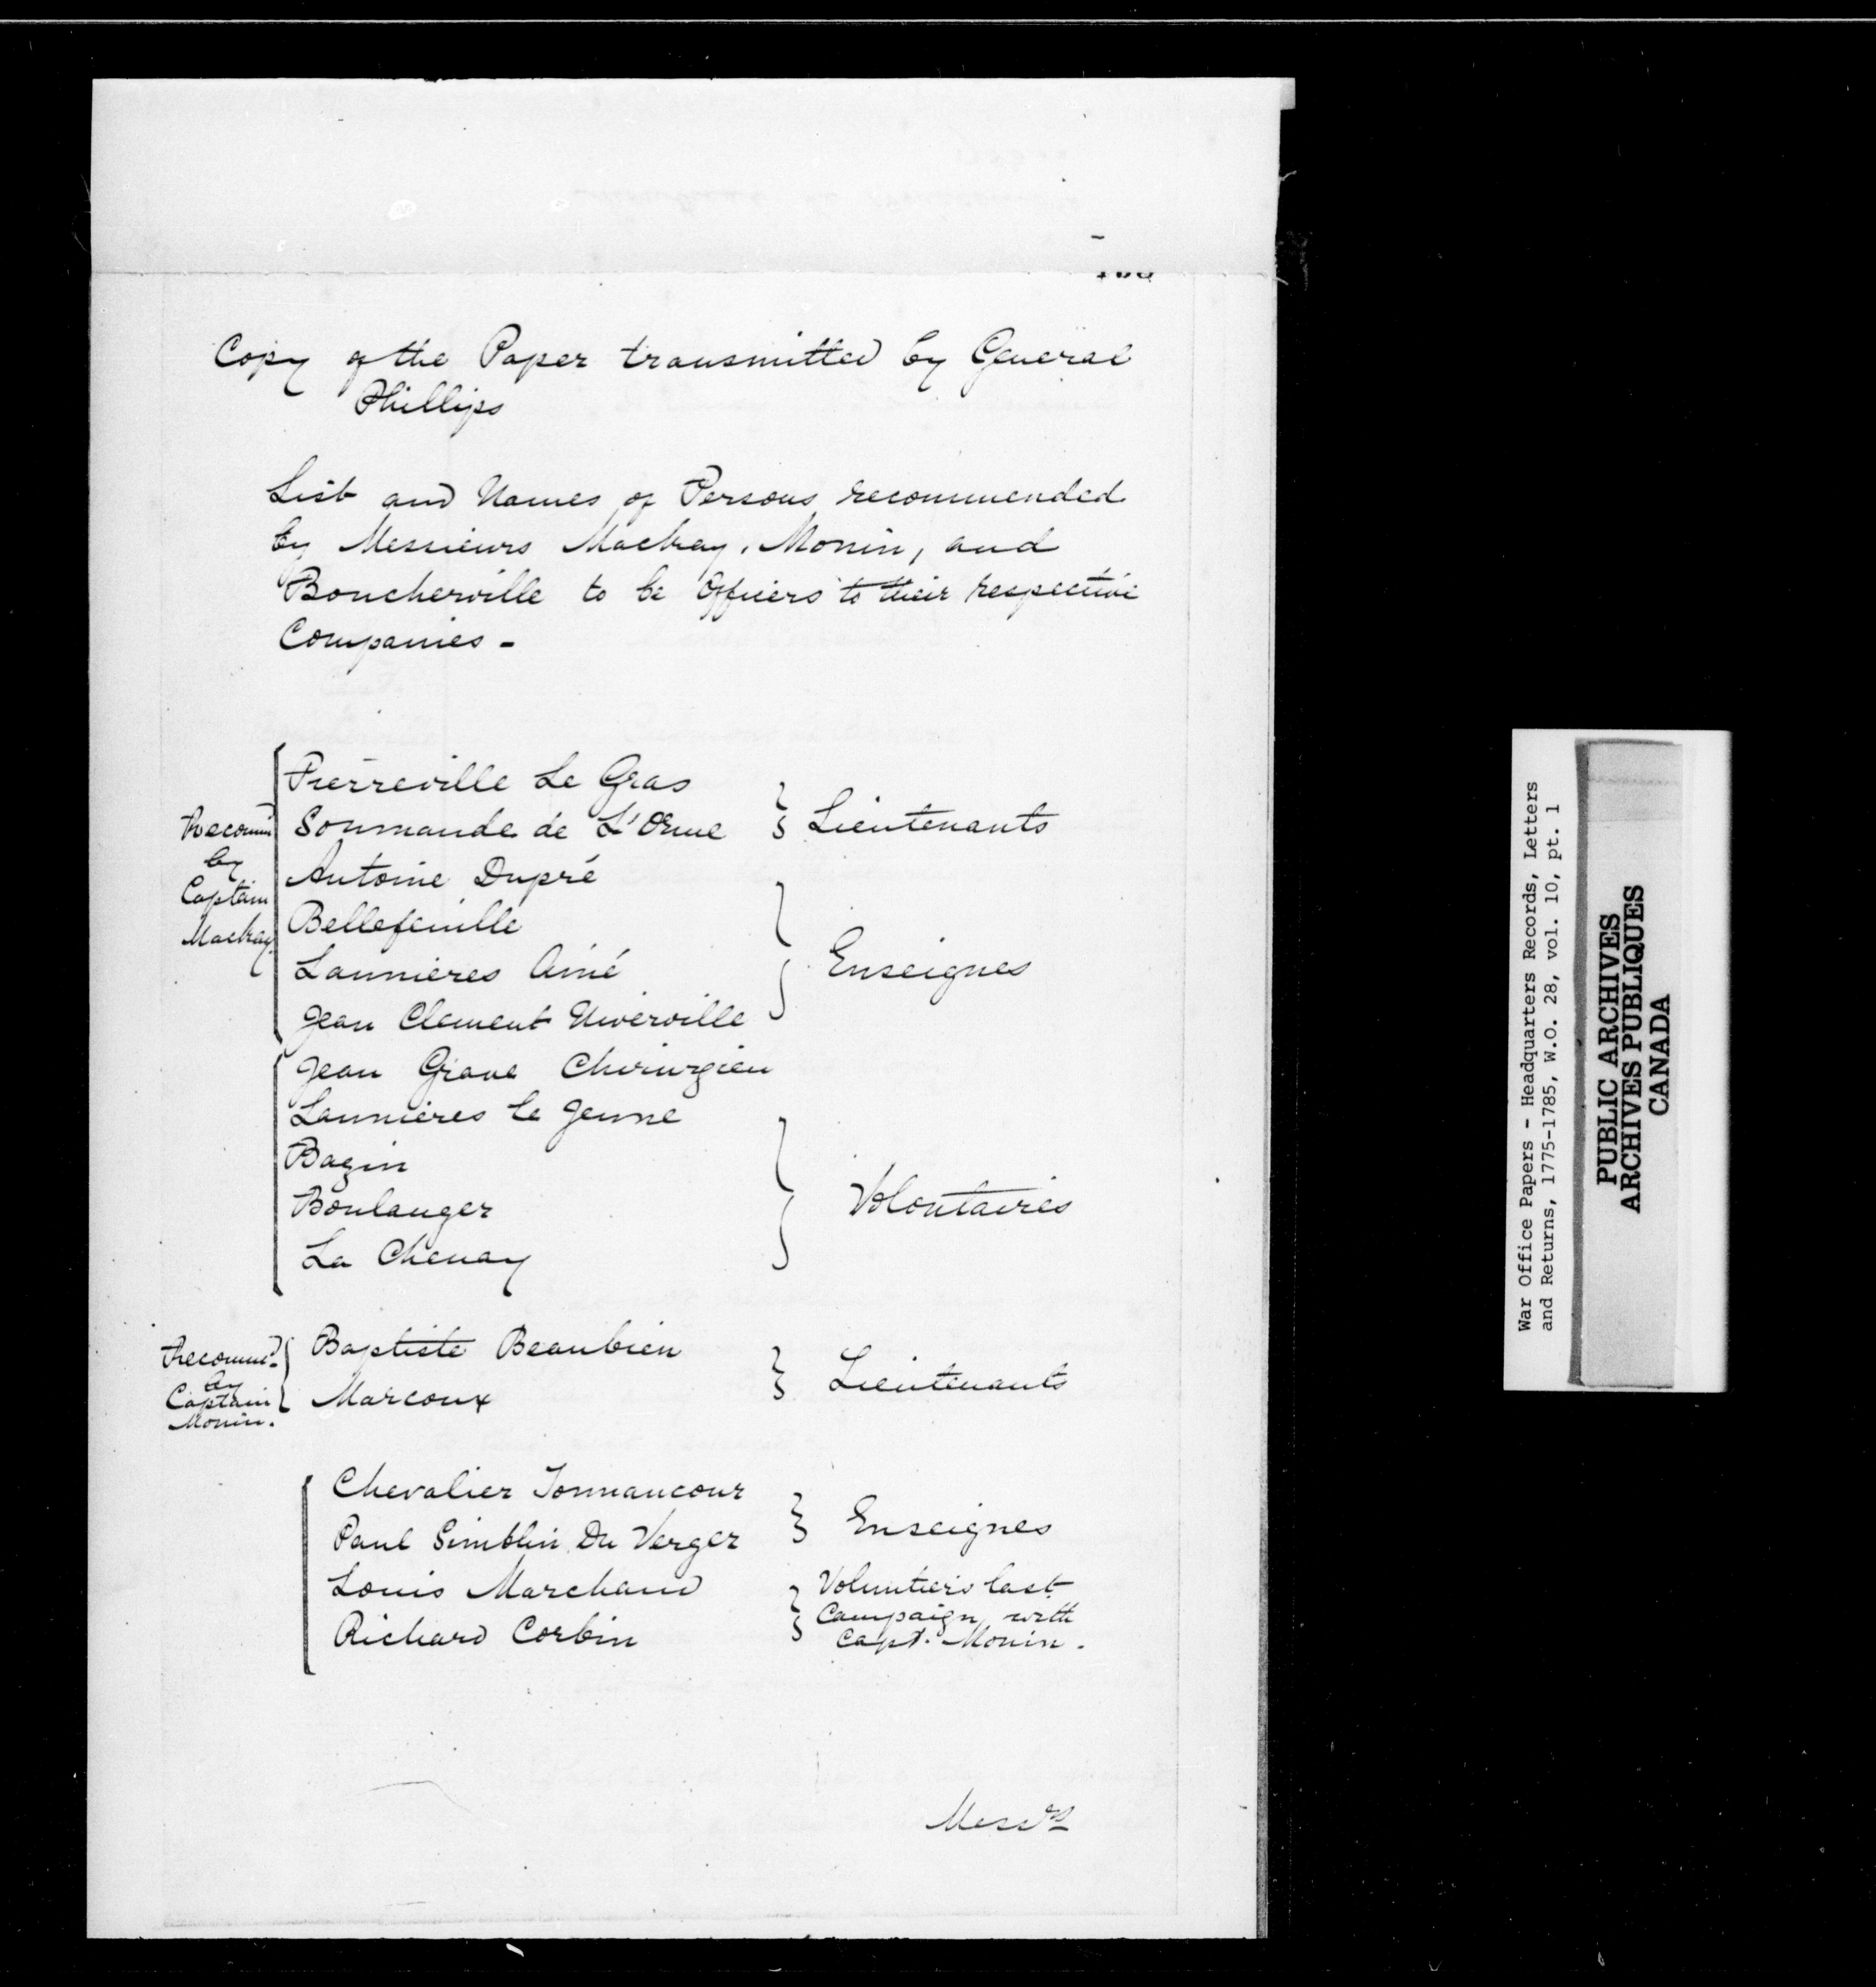 Copy of the Paper transmitted by General
Phillips
List and Names of Persons recommended
by Messieurs Mackay, Monin, and
Boucherville to be Officers to their respective
Companies -
Recomm
by
Captain
Mackay
Pierreville Le Gras
Soumande de L'Orme
Lieutenants
Antoine Dupré
Bellefeuille
Launieres Ainé
Jean Clement Niverville
Enseignes
Jean Grave Chirurgien
Launieres le Jeune
Bazin
Boulanger
La Chenay
Volontaires
Recommd
by
Captain
Monin.
Baptiste Beaubien
Marcoux
Lieutenants
Chevalier Tonnancour
Paul Gimblin Du Verger
Enseignes
Louis Marchand
Richard Corbin
Voluntiers last
Campaign with
Capt. Monin.
Messrs
War Office Papers - Headquarters Records, Letters
and Returns, 1775-1785, W.O. 28, vol. 10, pt. 1
PUBLIC ARCHIVES
ARCHIVES PUBLIQUES
CANADA